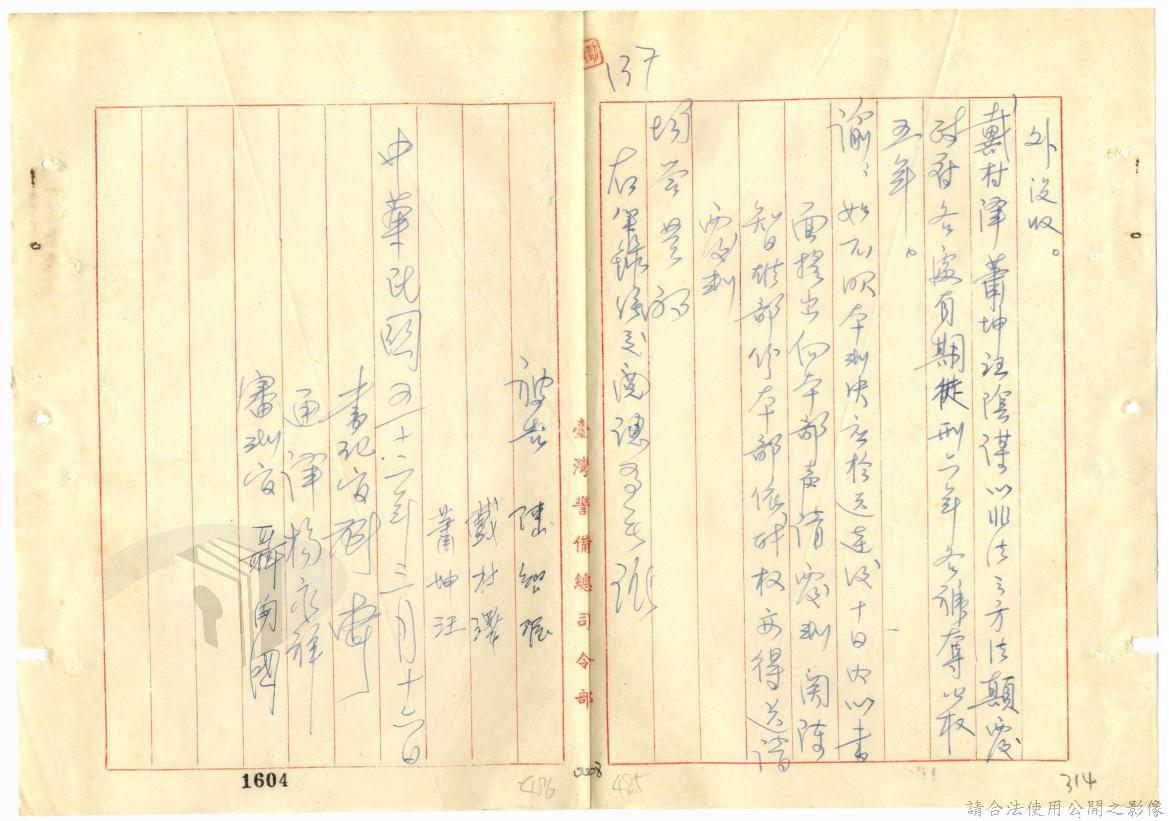 137
外沒收。
戴村澤蕭坤旺陰謀以非法之方法顛覆
政府各處有期徒刑六年各褫奪公權
五年。
諭:如不服本判決應於送達後十日內以書
面提出向本部聲請覆判 關陳
智雄部份本部依職權亦得送請
覆判
均答楚初
右筆錄經交閱認為無訛
被告 陳智雄
戴村澤
蕭坤旺
中華民國五十二年三月十六日
書記官
通譯 楊永祥
審判官 聶開國
臺灣警備總司令部
1604
486
0008
485
314
請合法使用公開之影像